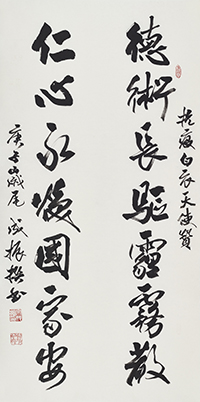 抗疫白衣天使贊
德術長驅霾霧散
仁心永煖國家安
庚子歲尾振撰書